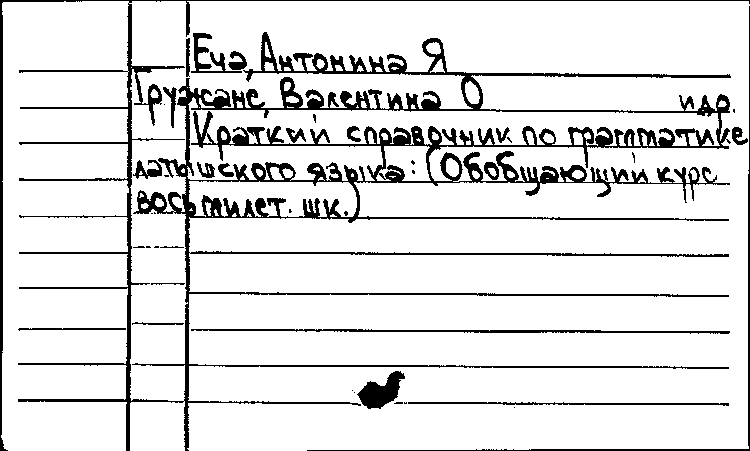 Еча, Антонина Я
Гружане, Валентина О и др.
Краткий справочник по грамматике
латышского языка: (Обобщающий курс
восьмилет. шк.)